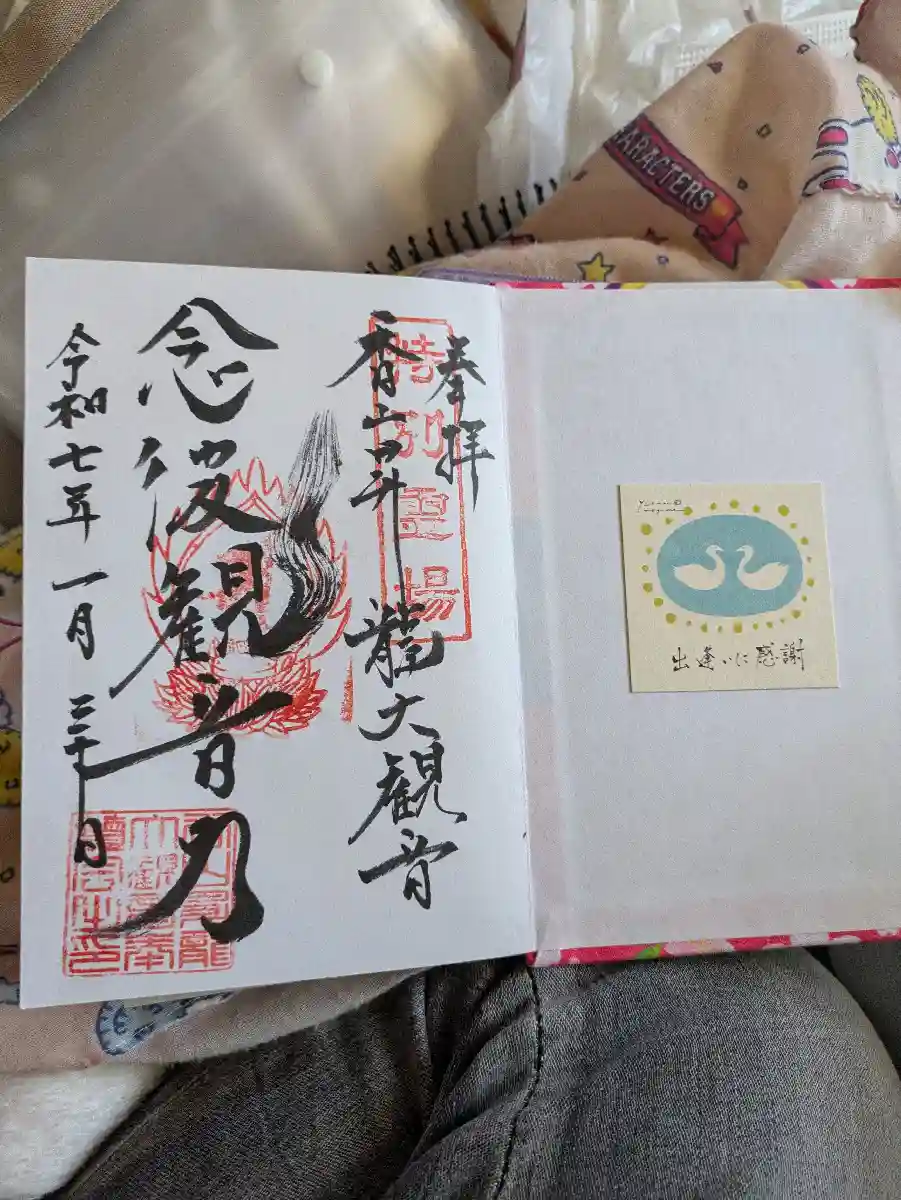 奉拝
特別霊場
香山昇龍大観音
念彼観音力
令和七年 一月 三十日
出逢いに感謝
CHARACTERS